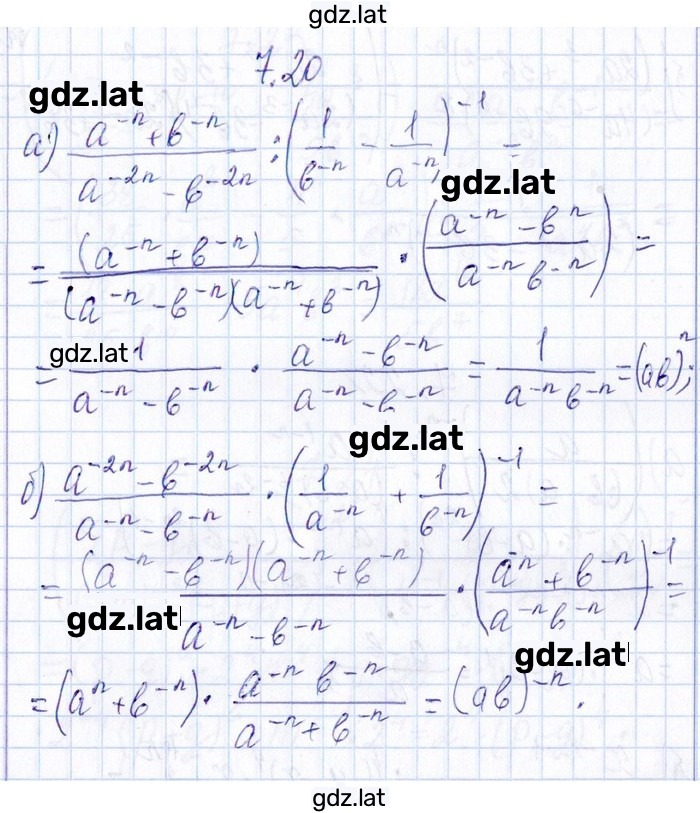 gdz.lat
7.20
gdz.lat
а) (a^{-n} + b^{-n})/(a^{-2n} - b^{-2n}) : (1/b^{-n} - 1/a^{-n})^{-1} =
gdz.lat
= (a^{-n} + b^{-n})/((a^{-n} - b^{-n})(a^{-n} + b^{-n})) · ((a^{-n} - b^{n})/(a^{-n} b^{-n})) =
gdz.lat
= 1/(a^{-n} - b^{-n}) · (a^{-n} - b^{-n})/(a^{-n} - b^{-n}) = 1/(a^{-n} b^{-n}) = (ab)^{n};
gdz.lat
б) (a^{-2n} - b^{-2n})/(a^{-n} - b^{-n}) · (1/a^{-n} + 1/b^{-n})^{-1} =
= (a^{-n} - b^{-n})(a^{-n} + b^{-n})/(a^{-n} - b^{-n}) · ((a^{-n} + b^{-n})/(a^{-n} b^{-n}))^{-1} =
gdz.lat
gdz.lat
= (a^{n} + b^{-n}) · (a^{-n} b^{-n})/(a^{-n} + b^{-n}) = (ab)^{-n}.
gdz.lat